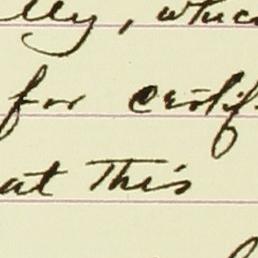 lly, which
for certif
at this